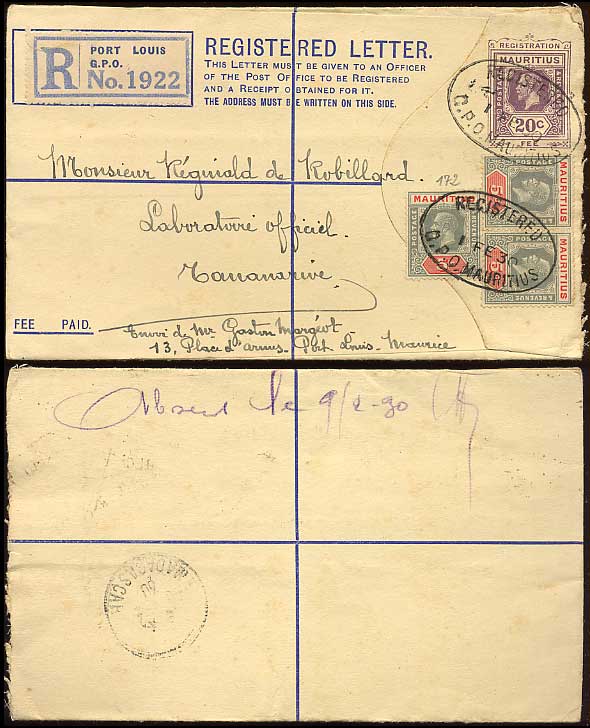 R
PORT LOUIS
G.P.O.
No. 1922
REGISTERED LETTER.
THIS LETTER MUST BE GIVEN TO AN OFFICER
OF THE POST OFFICE TO BE REGISTERED
AND A RECEIPT OBTAINED FOR IT.
THE ADDRESS MUST BE WRITTEN ON THIS SIDE.
REGISTRATION
MAURITIUS
POSTAGE
20c
FEE
REGISTERED
G.P.O. MAURITIUS
Monsieur Réginald de Robillard.
172
Laboratoire officiel
Tananarive
MAURITIUS
POSTAGE
MAURITIUS
POSTAGE
& REVENUE
MAURITIUS
POSTAGE
& REVENUE
REGISTERED
1 FE 30
G.P.O. MAURITIUS
FEE PAID.
Envoi de Mr Gaston Margéot
13, Place d'armes - Port Louis - Maurice
Absent le 9/2-30
MADAGASCAR